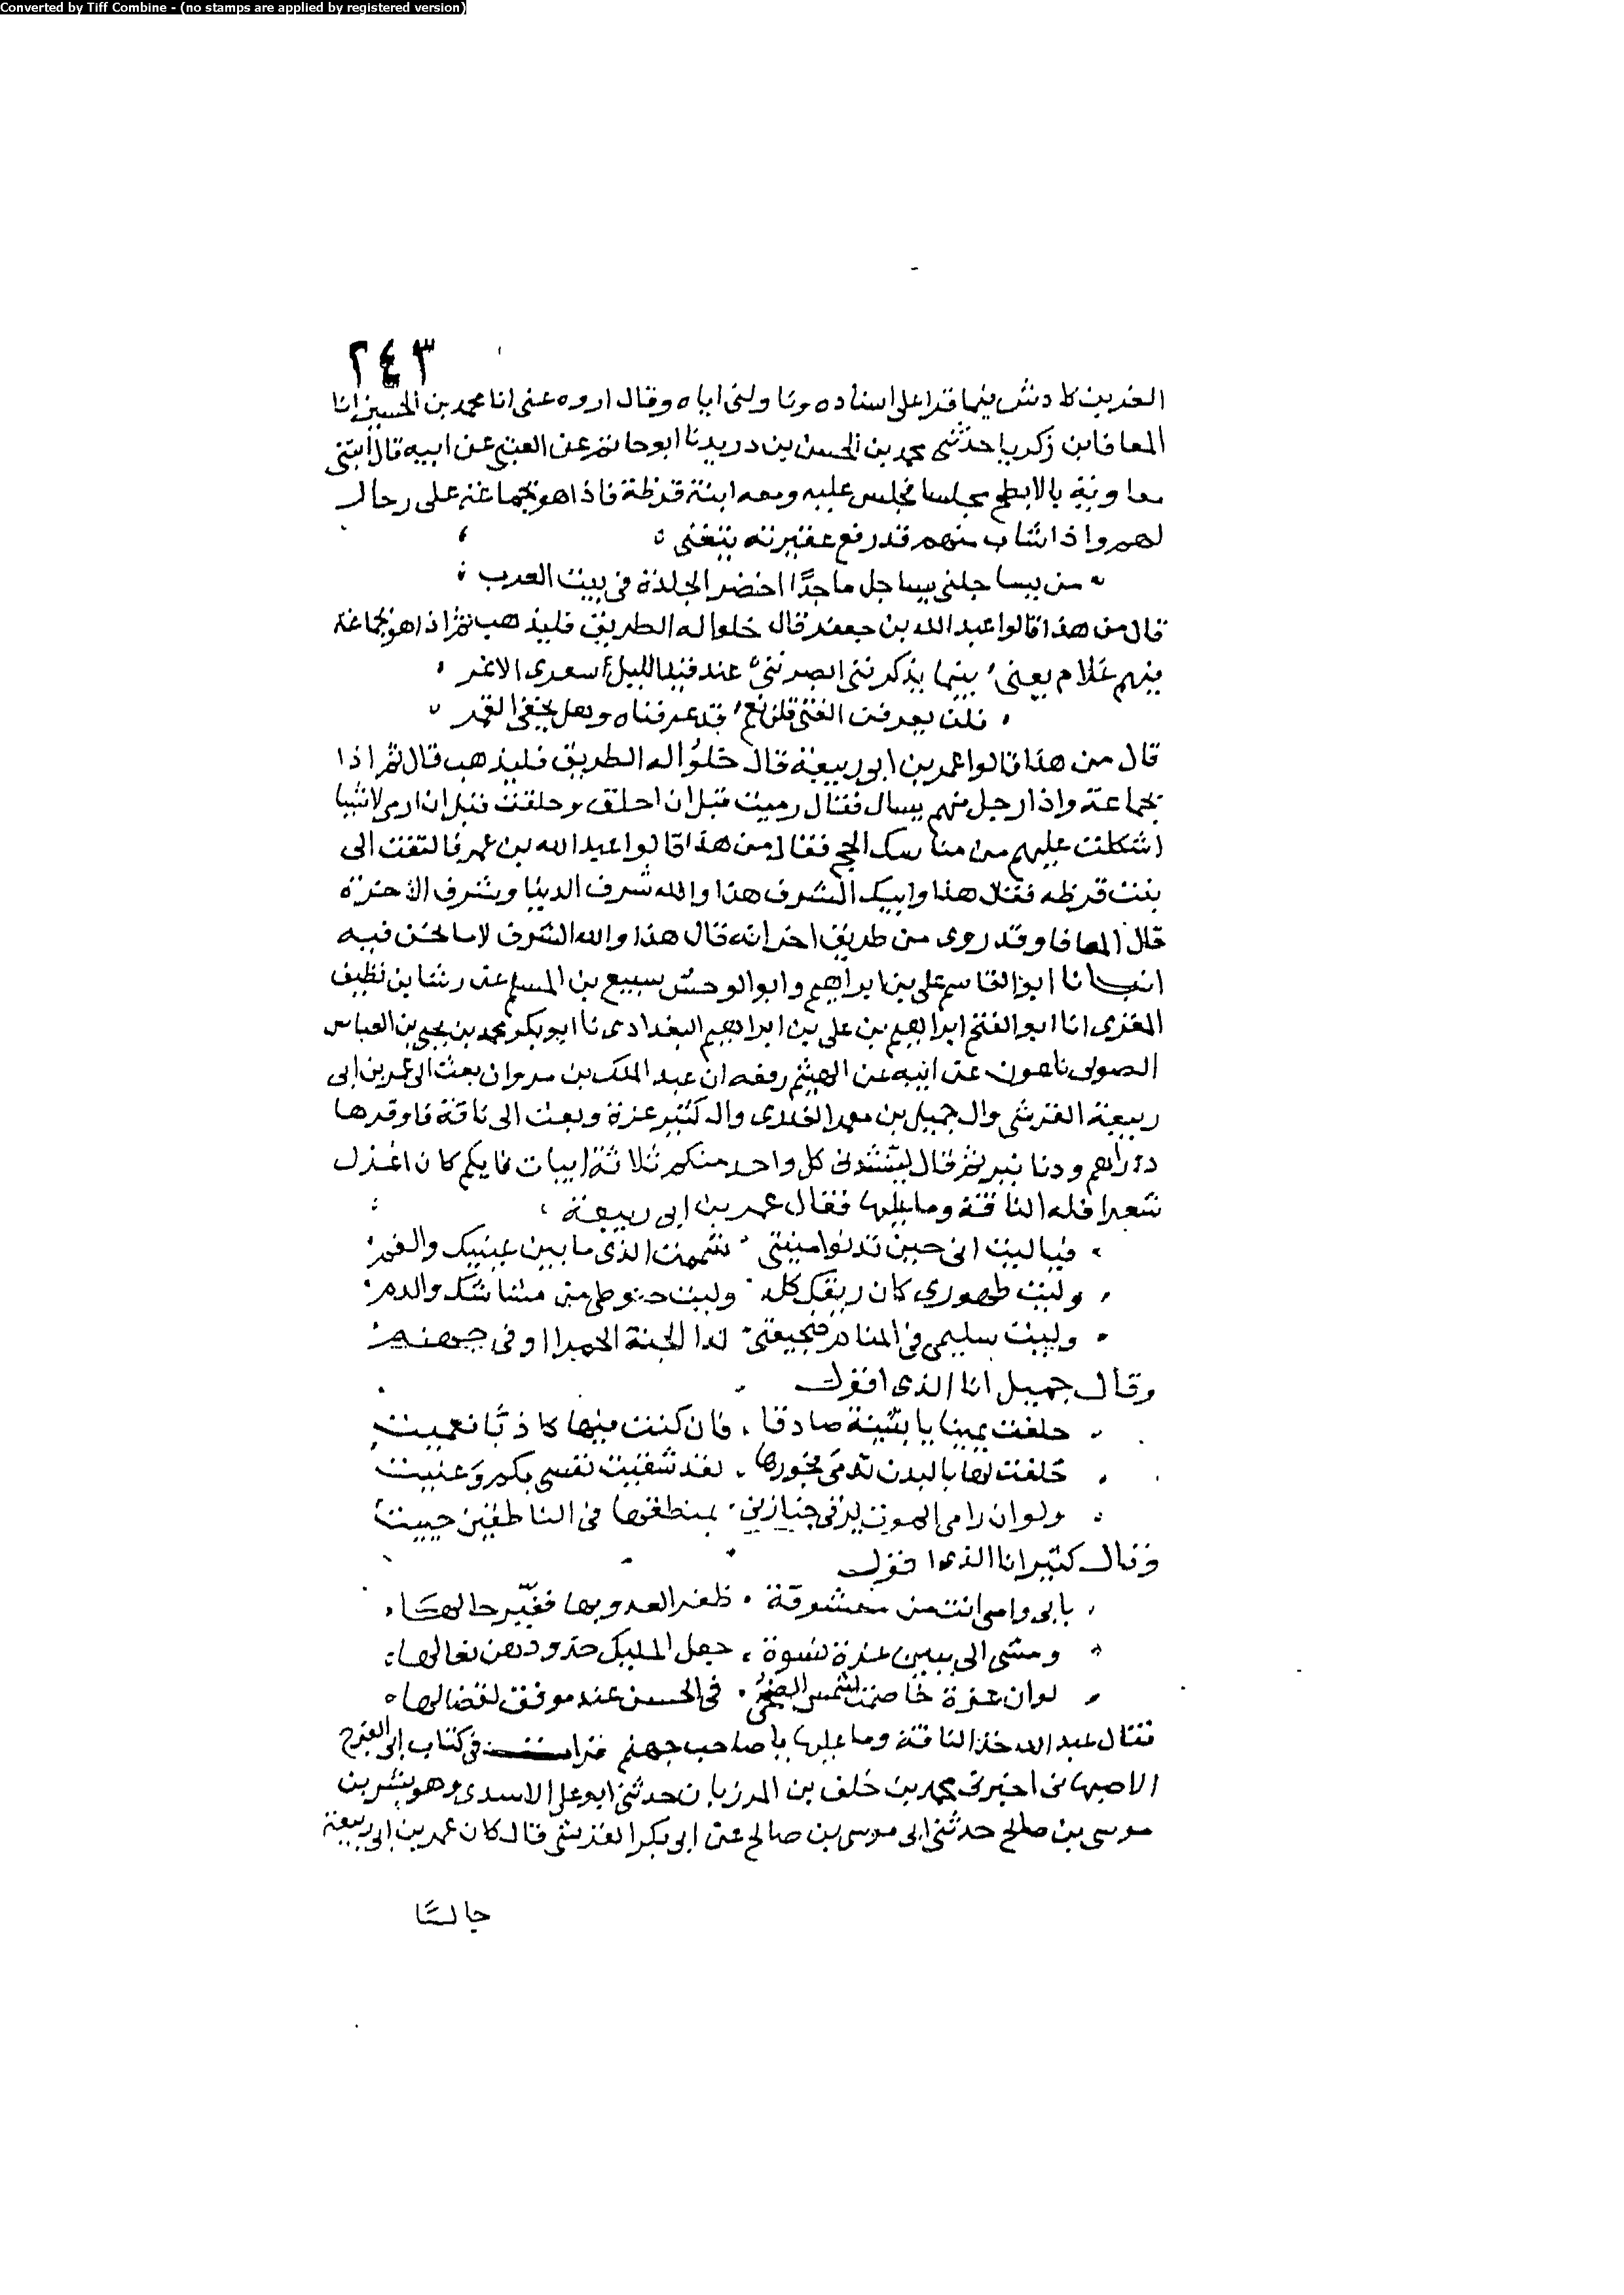 Converted by Tiff Combine - (no stamps are applied by registered version)
٢٤٣
العز بن كادش فيما قرا على اسناده وناولنى اياه وقال اروه عنى انا محمد بن الحسين انا
المعافا بن زكريا حدثنى محمد بن الحسن بن دريد نا ابو حاتم عن العتبى عن ابيه قال ابتنى
معاوية بالابطح مجلسا فجلس عليه ومعه ابنة قرظة فاذا هو بجماعة على رحال
لهم واذا شاب منهم قد رفع عقيرته يتغنى
من يساجلنى يساجل ماجدًا اخضر الجلدة فى بيت العرب
قال من هذا قالوا عبد الله بن جعفر قال خلوا له الطريق فليذهب ثم اذا هو بجماعة
فيهم غلام يغنى بينما يذكرننى ابصرننى عند قيد الليل اسعرى الاغر
قلن يعرفت الفتى قلن نعم قد عرفناه وهل يخفى القمر
قال من هذا قالوا عمر بن ابى ربيعة قال خلوا له الطريق فليذهب قال ثم اذا
بجماعة واذا رجل منهم يسال فقال رميت قبل ان احلق وحلقت قبل ان ارمى لاشيا
اشكلت عليهم من مناسك الحج فقال من هذا قالوا عبد الله بن عمر فالتفت الى
بنت قرظه فقال هذا وابيك الشرف هذا والله شرف الدنيا وشرف الاخرة
قال المعافا وقد روى من طريق اخر انه قال هذا والله الشرف لا ما نحن فيه
انبانا ابو القاسم على بن ابراهيم وابو الوحش سبيع بن المسلم عن رشا بن نظيف
المقرى انا ابو الفتح ابراهيم بن على بن ابراهيم البغدادى نا ابو بكر محمد بن يحيى بن العباس
الصولى نا عون عن ابيه عن الهيثم رفعه ان عبد الملك بن مروان بعث الى عمر بن ابى
ربيعة القرشى والى جميل بن معمر العذرى والى كثير عزة وبعث الى ناقة فاوقرها
دراهم ودنانير ثم قال لينشدنى كل واحد منكم ثلاثة ابيات فايكم كان اغزل
شعرا فله الناقة وما عليها فقال عمر بن ابى ربيعة
فياليت انى حين تدنوا منيتى شممت الذى ما بين عينيك والفم
وليت طهورى كان ريقك كله وليت حنوطى من مشاشك والدم
وليت سليمى فى المنام ضجيعتى لدا الجنة الحمرا او فى جهنم
وقال جميل انا الذى اقول
حلفت يمينا يا بثينة صادقا فان كنت فيها كاذبًا فعميت
حلفت لها بالبدن تدمى نحورها لقد شقيت نفسى بكم وعنيت
ولو ان راقى الموت يرقى جنازتى بمنطقها فى الناطقين حييت
وقال كثير انا الذى اقول
بابى وامى انت من معشوقة ظفر العدو بها فغيّر حالها
ومشى الى ببين عزة نسوة جعل المليك خدودهن نعالها
لو ان عزة خاصمت شمس الضحى فى الحسن عند موفق لقضا لها
فقال عبد الله خذ الناقة وما عليها يا صاحب جهنم قرات فى كتاب ابى الفرج
الاصبهانى اخبرنى محمد بن خلف بن المرزبان حدثنى ابو على الاسدى وهو بشر بن
موسى بن صالح حدثنى ابى موسى بن صالح عن ابى بكر القرشى قال كان عمر بن ابى ربيعة
جالسًا